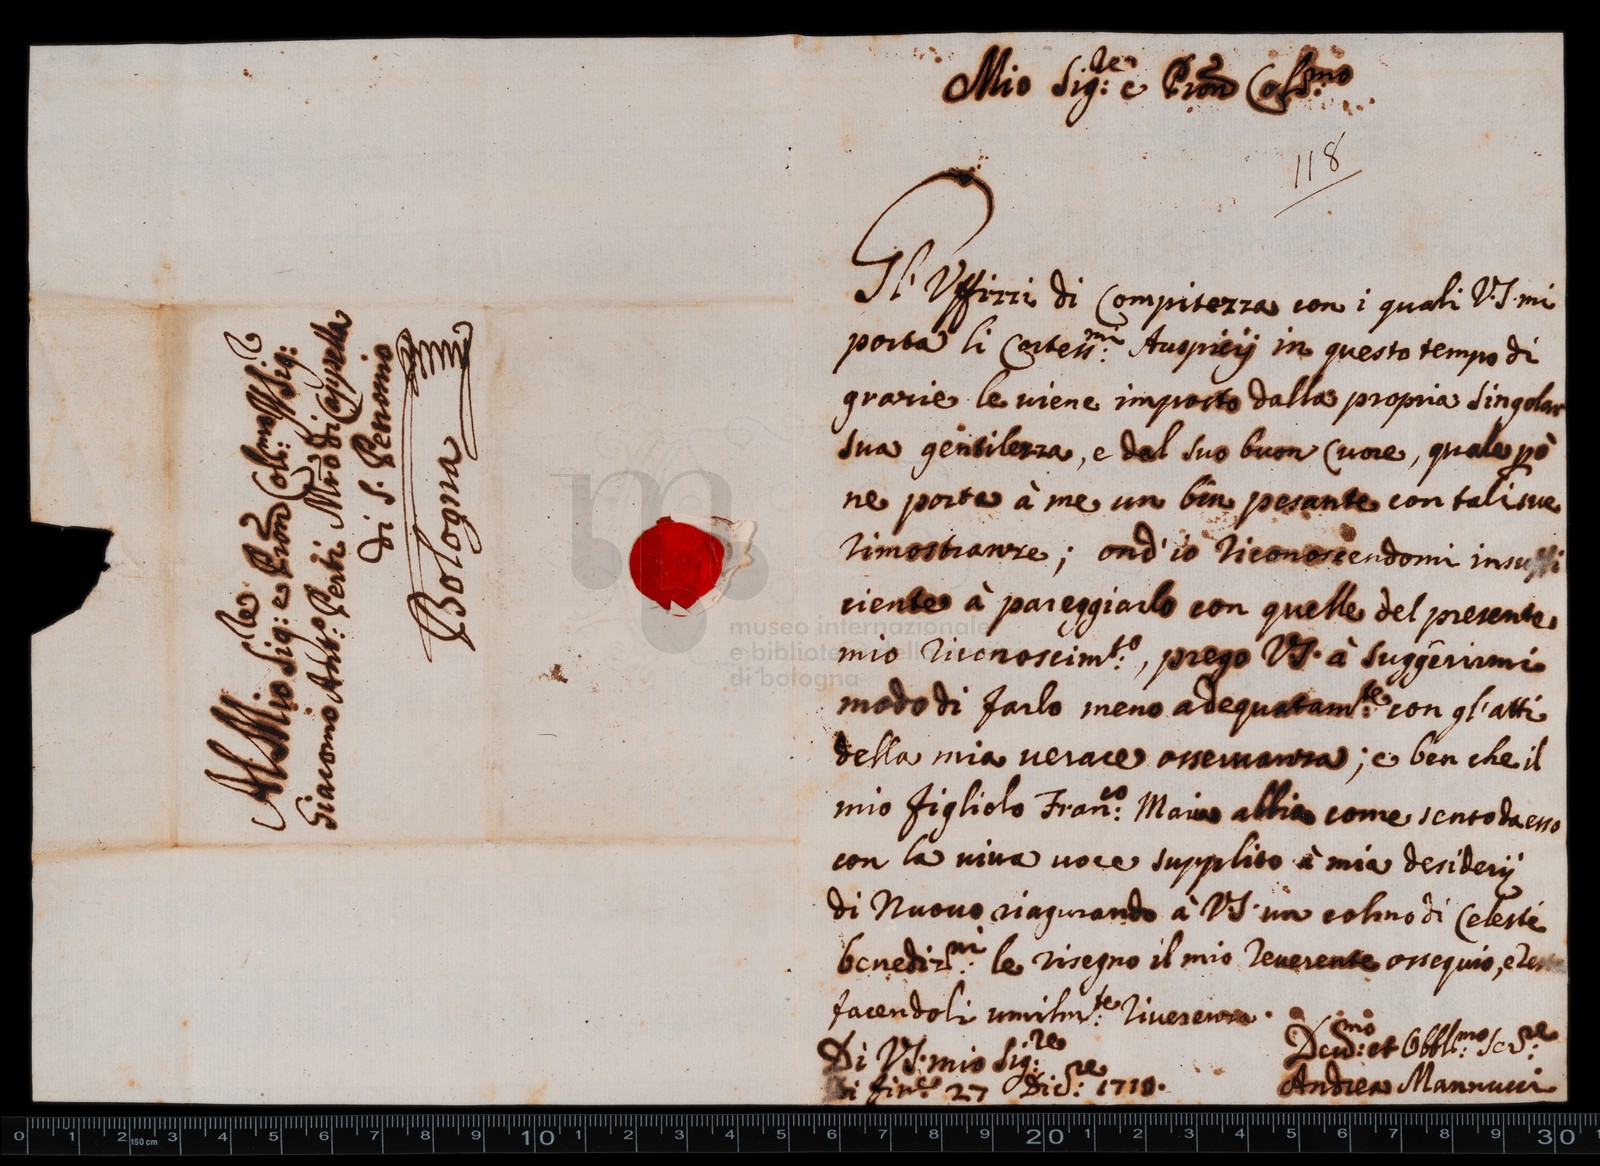 Mio Sig:re e Pron Colss:mo
118
Gl' Uffizzi di Compitezza con i quali V.S. mi
porta li Cortess:mi Auspicij in questo tempo di
grazie le viene imposto dalla propria Singolar
sua gentilezza, e dal suo buon Cuore, quale pò
ne porta à me un ben pesante con tali sue
rimostranze; ond' io riconoscendomi insuffi
ciente à pareggiarlo con quelle del presente
mio riconoscim:to, prego V.S. à suggerirmi
modo di farlo meno adequatam:te con gl' atti
della mia verace osservanza; e ben che il
mio figliolo Fran:co Maria abbia come sento da esso
con la viva voce supplito à miei desiderij
di Nuovo riagurando à V.S. un colmo di Celesti
benediz:ni le risegno il mio reverente ossequio, e
facendoli umilm:te riverenza.
Di V.S. mio Sig:re
Di Fir:e 27 Dic:re 1710.
Dev:mo et Obbl:mo Ser:re
Andrea Mannucci
Al M. Ille
Mio Sig: e Pron Coll:mo Il Sig:
Giacomo Ant:o Perti Mro di Cappella
di S. Petronio
Bologna
museo internazionale
e biblioteca della musica
di bologna